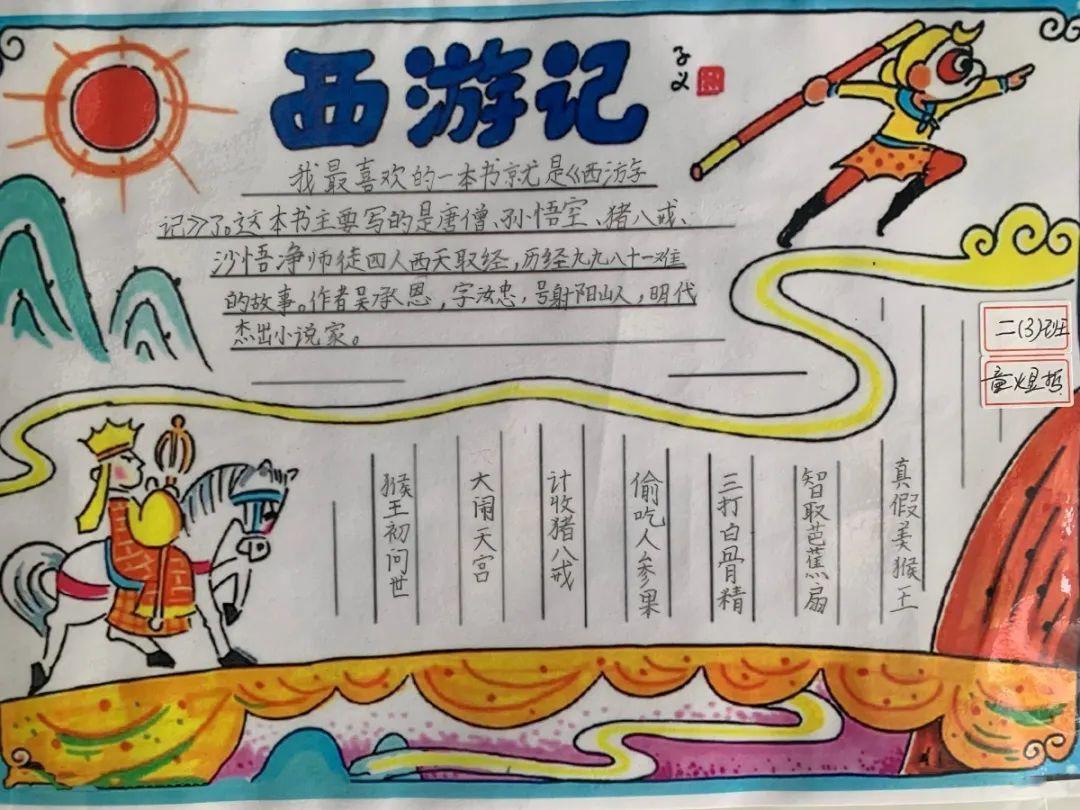 西游记
子义
我最喜欢的一本书就是《西游
记》了。这本书主要写的是唐僧、孙悟空、猪八戒、
沙悟净师徒四人西天取经，历经九九八十一难
的故事。作者吴承恩，字汝忠，号射阳山人，明代
杰出小说家。
二(3)班
童煜哲
猴王初问世
大闹天宫
计收猪八戒
偷吃人参果
三打白骨精
智取芭蕉扇
真假美猴王